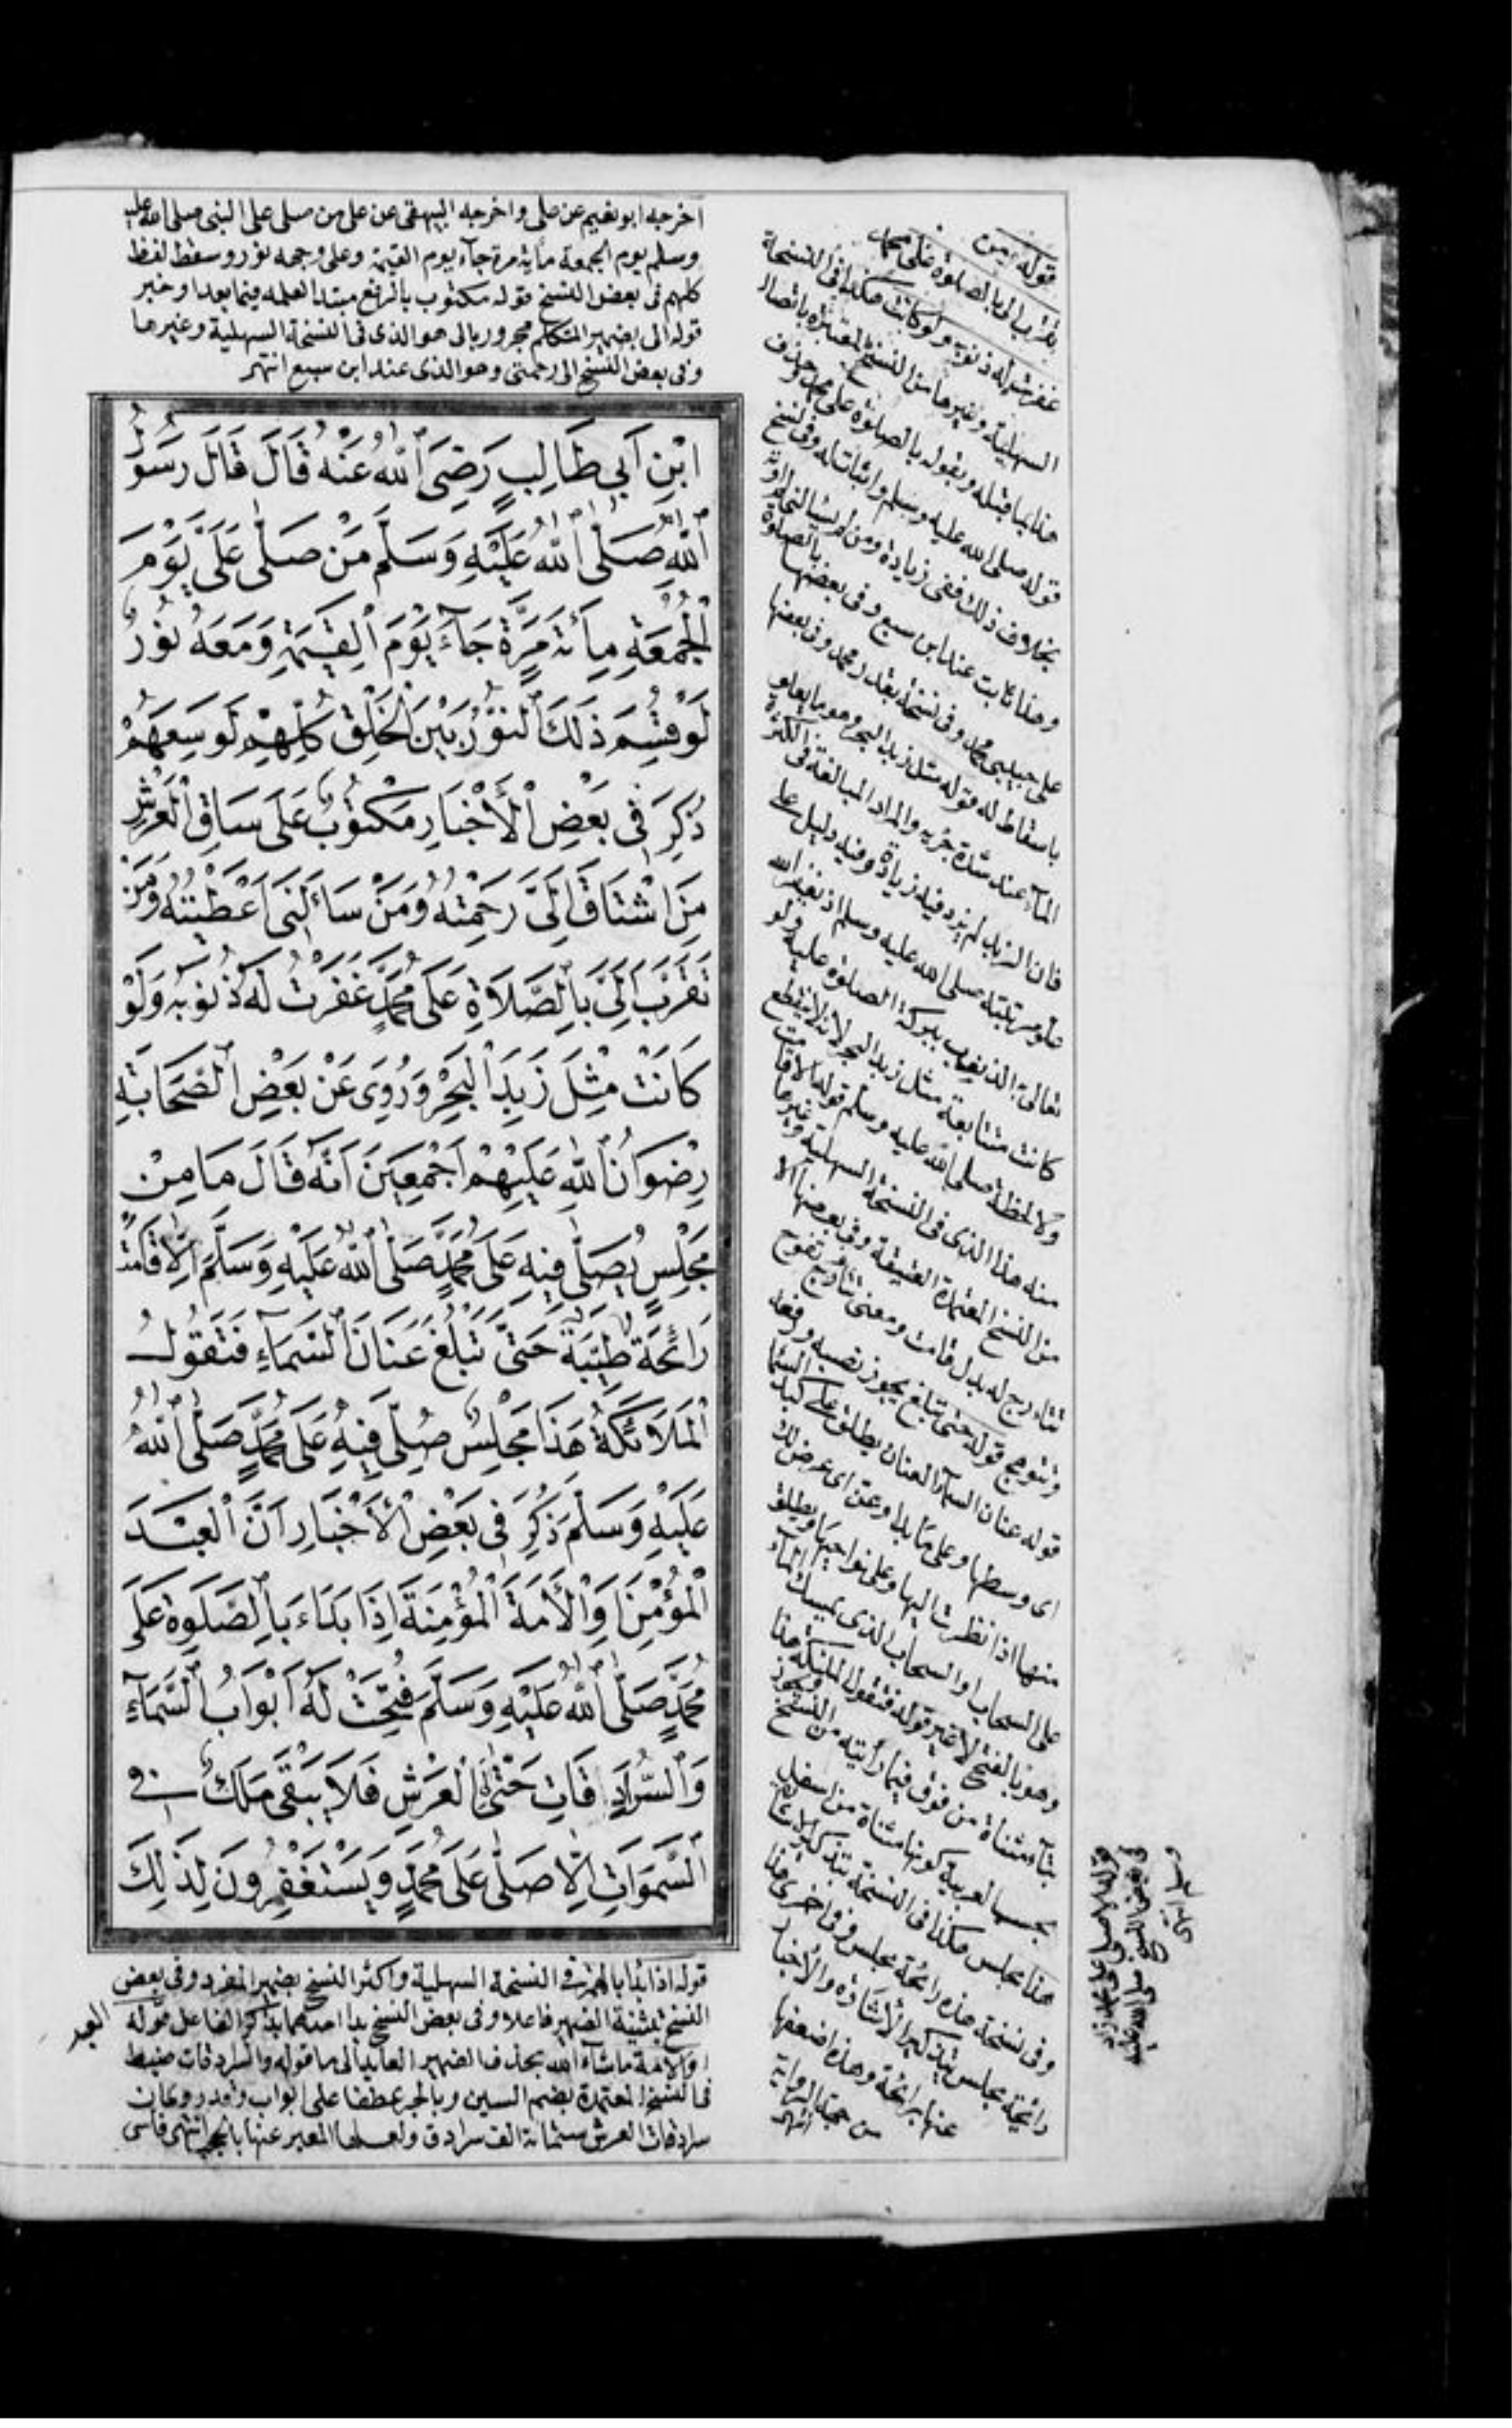 اخرجه ابو نعيم عن على واخرجه البيهقى عن على من صلى على النبى صلى الله عليه
وسلم يوم الجمعة مائة مرة جاء يوم القيمة وعلى وجهه نور وسقط لفظ
كلهم فى بعض النسخ قوله مكتوب بالرفع مبتدا لعله فيما بعدا وخبر
قوله الى بضمير المتكلم مجرور بالى هو الذى فى النسخة السهلية وغيرها
وفى بعض النسخ الى رحمتى وهو الذى عند ابن سبع انتهى
ابْنِ اَبِى طَالِبٍ رَضِىَ اللّٰهُ عَنْهُ قَالَ قَالَ رَسُولُ
اللّٰهِ صَلَّى اللّٰهُ عَلَيْهِ وَسَلَّمَ مَنْ صَلَّى عَلَىَّ يَوْمَ
الْجُمُعَةِ مِأَئَةَ مَرَّةٍ جَآءَ يَوْمَ الْقِيٰمَةِ وَمَعَهُ نُورٌ
لَوْ قُسِمَ ذٰلِكَ النُّوْرُ بَيْنَ الْخَلْقِ كُلِّهِمْ لَوَسِعَهُمْ
ذُكِرَ فِى بَعْضِ الْأَخْبَارِ مَكْتُوبٌ عَلَى سَاقِ الْعَرْشِ
مَنِ اشْتَاقَ اِلَىَّ رَحِمْتُهُ وَمَنْ سَاَلَنِى اَعْطَيْتُهُ وَمَنْ
تَقَرَّبَ اِلَىَّ بِالصَّلَاةِ عَلَى مُحَمَّدٍ غَفَرْتُ لَهُ ذُنُوبَهُ وَلَوْ
كَانَتْ مِثْلَ زَبَدِ الْبَحْرِ وَرُوِىَ عَنْ بَعْضِ الصَّحَابَةِ
رِضْوَانُ اللّٰهِ عَلَيْهِمْ اَجْمَعِينَ اَنَّهُ قَالَ مَا مِنْ
مَجْلِسٍ يُصَلَّى فِيهِ عَلَى مُحَمَّدٍ صَلَّى اللّٰهُ عَلَيْهِ وَسَلَّمَ اِلَّا قَامَتْ
رَائِحَةٌ طَيِّبَةٌ حَتَّى تَبْلُغَ عَنَانَ السَّمَآءِ فَتَقُولُ
الْمَلَائِكَةُ هَذَا مَجْلِسٌ صُلِّىَ فِيهِ عَلَى مُحَمَّدٍ صَلَّى اللّٰهُ
عَلَيْهِ وَسَلَّمَ ذُكِرَ فِى بَعْضِ الْأَخْبَارِ اَنَّ الْعَبْدَ
الْمُؤْمِنَ اَوِ الْأَمَةَ الْمُؤْمِنَةَ اِذَا بَدَاءَ بِالصَّلٰوةِ عَلَى
مُحَمَّدٍ صَلَّى اللّٰهُ عَلَيْهِ وَسَلَّمَ فُتِحَتْ لَهُ اَبْوَابُ السَّمَآءِ
وَالسُّرَادِقَاتِ حَتَّى اِلَى الْعَرْشِ فَلَا يَبْقَى مَلَكٌ فِى
السَّمَوَاتِ اِلَّا صَلَّى عَلَى مُحَمَّدٍ وَيَسْتَغْفِرُونَ لِذَلِكَ
قوله اذا بدا بالهمز فى النسخة السهلية واكثر النسخ بضمير المفرد وفى بعض
النسخ بتثنية الضمير فاعلا وفى بعض النسخ بدا احدهما بذكر الفاعل قوله
او الامة ما شاء الله بحذف الضمير العايد الى ما قوله والسرادقات ضبط
فى النسخ المعتمدة بضم السين وبالجر عطفا على ابواب
سرادقات العرش ستمائة الف سرادق ولعلها المعبر عنها بالحجب انتهى فاسى
العبد
قوله ومن
تقرب الى بالصلوة على محمد
غفرت له ذنوبه ولو كانت هكذا فى النسخة
السهلية وغيرها من النسخ المعتبرة باتصال
هذا بما قبله وبقوله بالصلوة على محمد وحذف
قوله صلى الله عليه وسلم واثباتا له وفى نسخ
بخلاف ذلك ففى زيادة
وهذا ثابت عند ابن سبع وفى بعضها بالصلوة
على حبيبى محمد وفى نسخة بعد محمد وفى بعضها
باسقاط له قوله مثل زبد البحر وهو ما يعلو
الماء عند شدة جريه والمراد المبالغة فى الكثرة
فان الزبد لم يزد فيه زيادة وفيه دليل على
علو مرتبته صلى الله عليه وسلم اذ يغفر الله
تعالى الذنوب ببركة الصلوة عليه ولو
كانت متتابعة مثل زبد البحر لا تنقطع
ولا لحظة صلى الله عليه وسلم قوله الا قامت
منه هذا الذى فى النسخة السهلية وغيرها
من النسخ المعتمدة العتيقة وفى بعضها الا
تتارج له بدل قامت ومعنى تتارج تفوح
وتتوهج قوله حتى تبلغ يجوز نصبه ورفعه
قوله عنان السماء العنان يطلق على كبد السماء
اى وسطها وعلى ما بدا وعن اى عرض لك
منها اذا نظرت اليها وعلى نواحيها ويطلق
على السحاب او السحاب الذى يمسك الماء
وهو بالفتح لا غير قوله فتقول الملئكة هذا
بتاء مثناة من فوق فيما رايته من النسخ
العربية كونها مثناة من اسفل
هذا مجلس هكذا فى النسخة بتذكير الاشارة
وفى نسخة هذه رائحة مجلس وفى اخرى هذا
رائحة مجلس بتذكير الاشارة والاخبار
عنها برائحة وهذه اضعفها
من جهة الرواية
انتهى